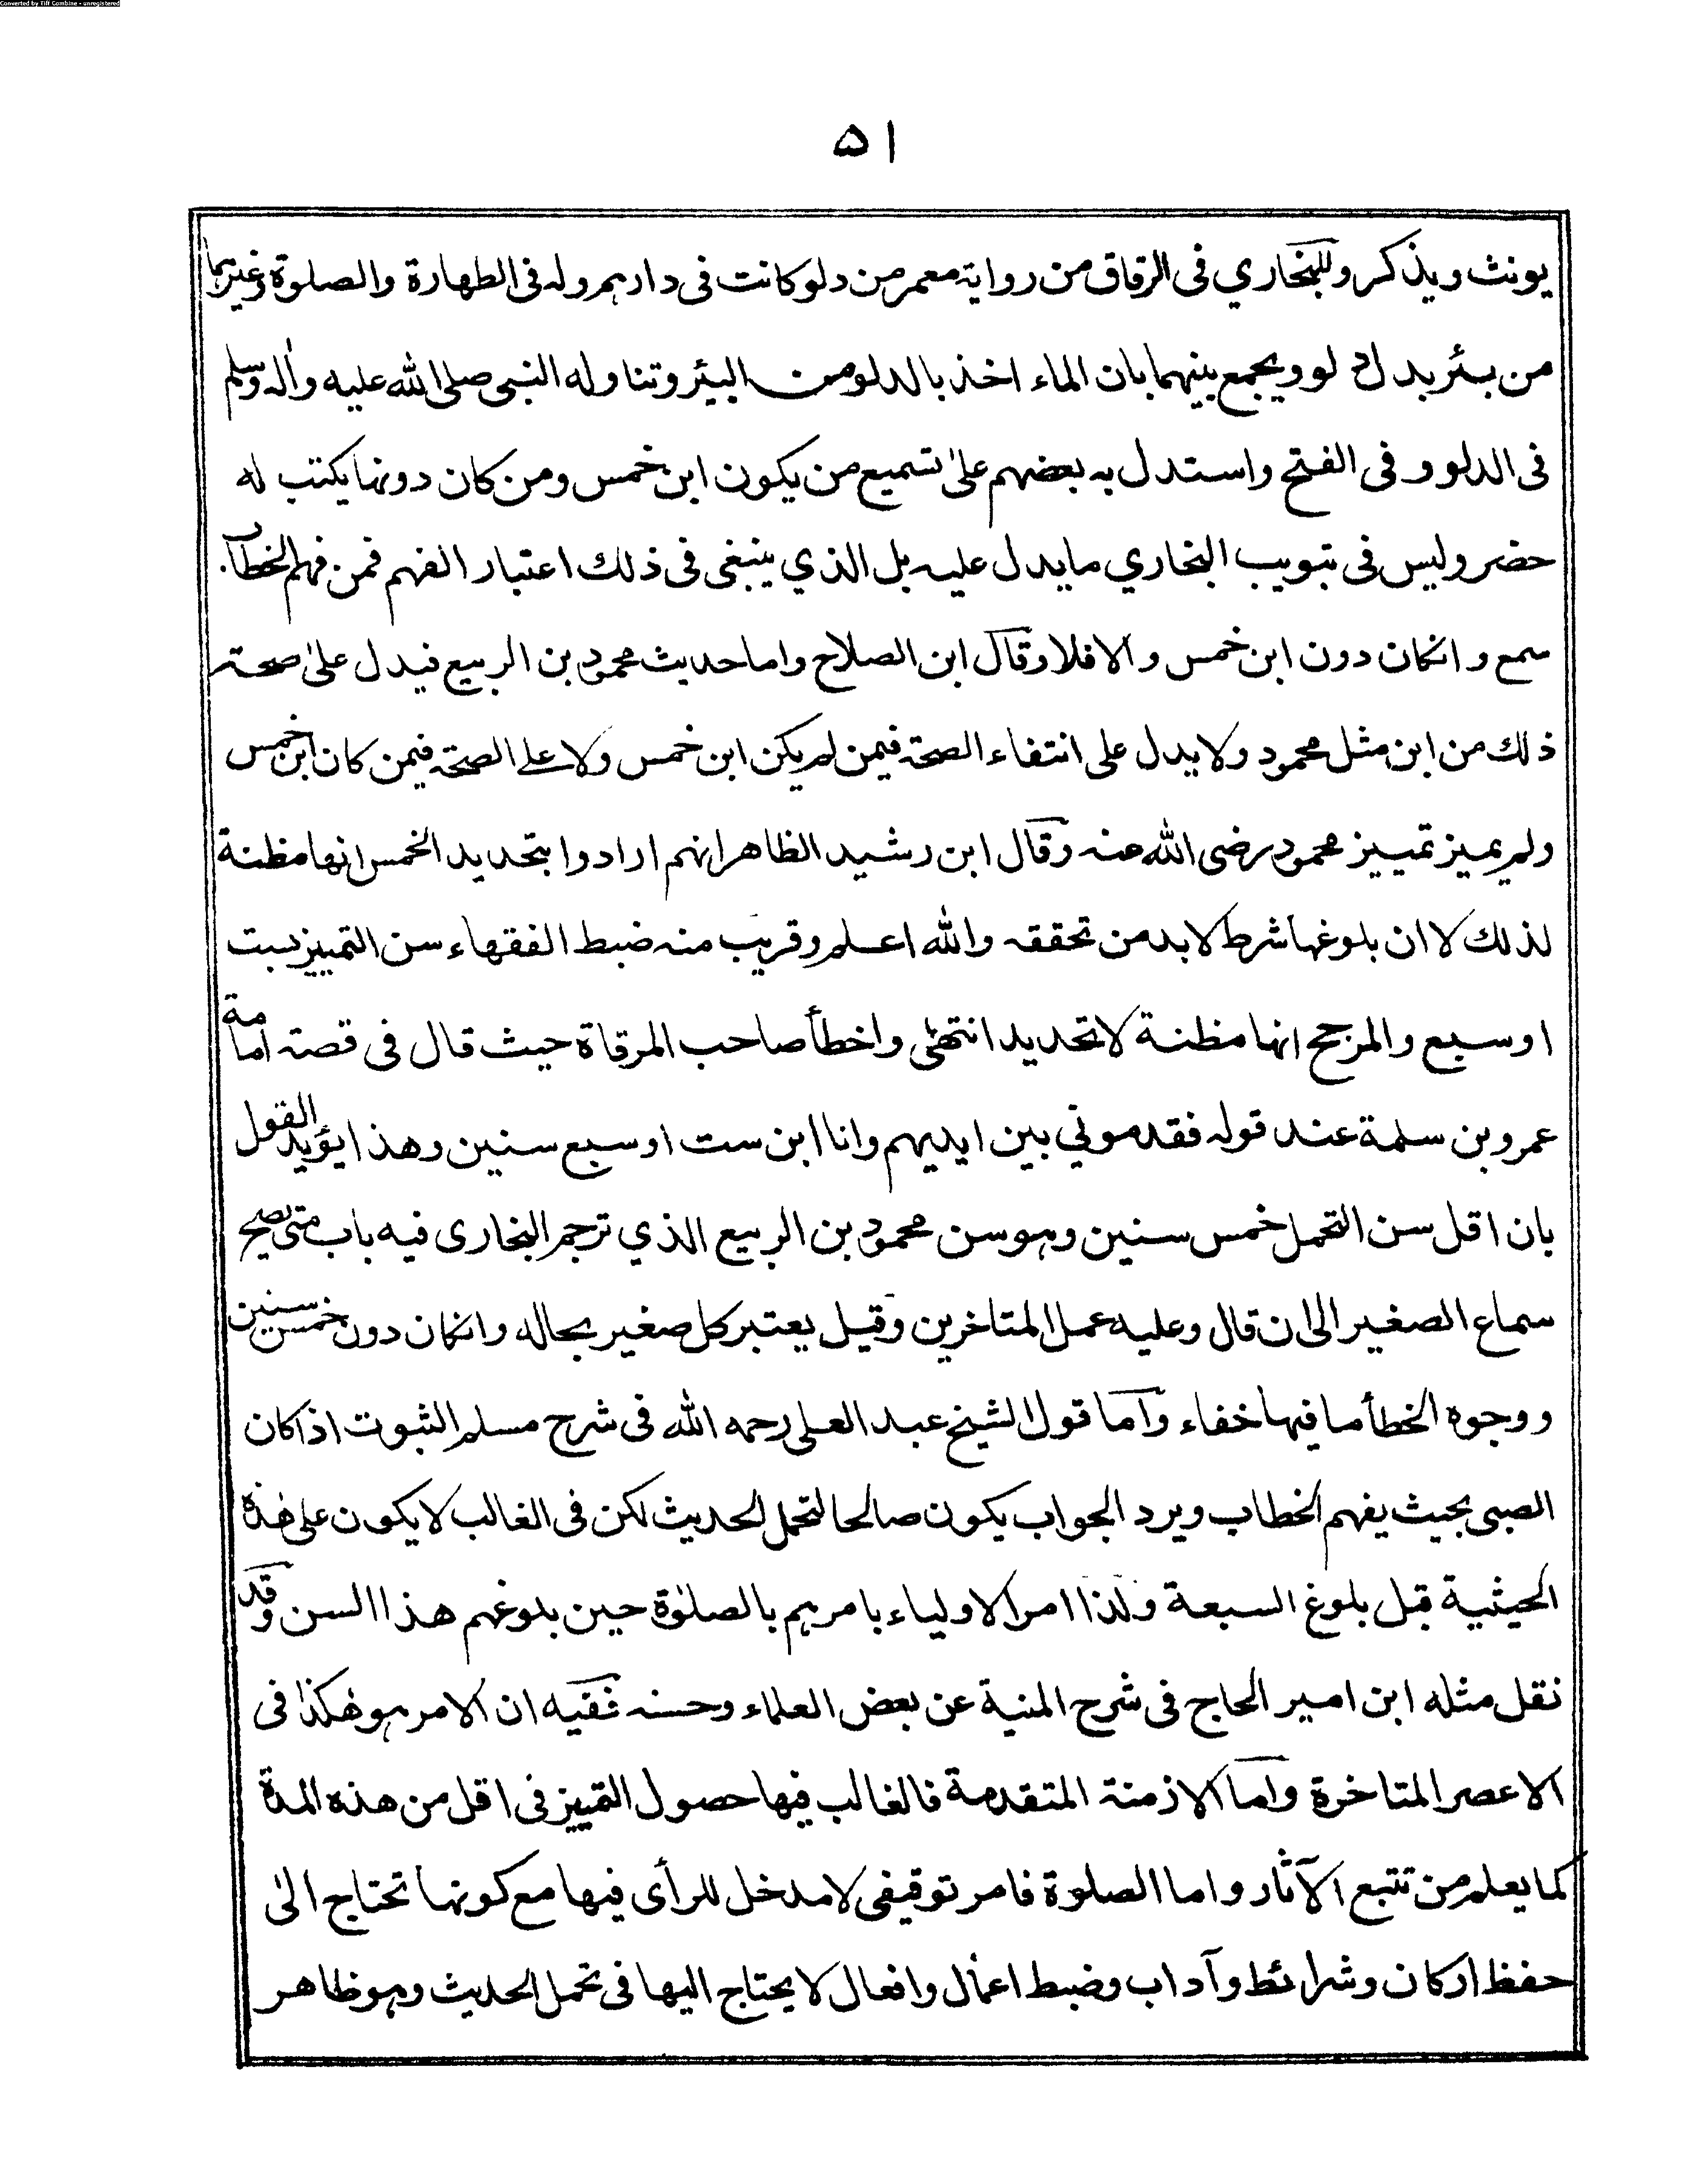 Converted by Tiff Combine - unregistered
۵۱
يونث ويذكر وللبخاري فى الرقاق من رواية معمر من دلو كانت فى دارهم وله فى الطهارة والصلوة وغيرهما
من بئر بدل دلو ويجمع بينهما بان الماء اخذ بالدلو من البئر وتناوله النبى صلى الله عليه واله وسلم
فى الدلو وفى الفتح واستدل به بعضهم على تسميع من يكون ابن خمس ومن كان دونها يكتب له
حضر وليس فى تبويب البخاري ما يدل عليه بل الذي ينبغى فى ذلك اعتبار الفهم فمن فهم الخطاب
سمع وانكان دون ابن خمس والا فلا وقال ابن الصلاح واما حديث محمود بن الربيع فيدل على صحة
ذلك من ابن مثل محمود ولا يدل على انتفاء الصحة فيمن لم يكن ابن خمس ولا على الصحة فيمن كان ابن خمس
ولم يميز تمييز محمود رضى الله عنه وقال ابن رشيد الظاهر انهم ارادوا بتحديد الخمس انها مظنة
لذلك لا ان بلوغها شرط لا بد من تحققه والله اعلم وقريب منه ضبط الفقهاء سن التمييز بست
او سبع والمرجح انها مظنة لا تحديد انتهى واخطأ صاحب المرقاة حيث قال فى قصة امامة
عمرو بن سلمة عند قوله فقدموني بين ايديهم وانا ابن ست او سبع سنين وهذا يؤيد القول
بان اقل سن التحمل خمس سنين وهو سن محمود بن الربيع الذي ترجم البخارى فيه باب متى يصح
سماع الصغير الى ان قال وعليه عمل المتاخرين وقيل يعتبر كل صغير بحاله وانكان دون خمس سنين
ووجوه الخطأ ما فيها خفاء وأما قول الشيخ عبد العلى رحمه الله فى شرح مسلم الثبوت اذا كان
الصبى بحيث يفهم الخطاب ويرد الجواب يكون صالحا لتحمل الحديث لكن فى الغالب لا يكون على هذه
الحيثية قبل بلوغ السبعة ولذا امر الاولياء بامرهم بالصلوة حين بلوغهم هذا السن وقد
نقل مثله ابن امير الحاج فى شرح المنية عن بعض العلماء وحسنه ففيه ان الامر هو هكذا فى
الاعصر المتاخرة واما الازمنة المتقدمة فالغالب فيها حصول التمييز فى اقل من هذه المدة
كما يعلم من تتبع الآثار واما الصلوة فامر توقيفى لا مدخل للرأى فيها مع كونها تحتاج الى
حفظ اركان وشرائط وآداب وضبط اعمال وافعال لا يحتاج اليها فى تحمل الحديث وهو ظاهر